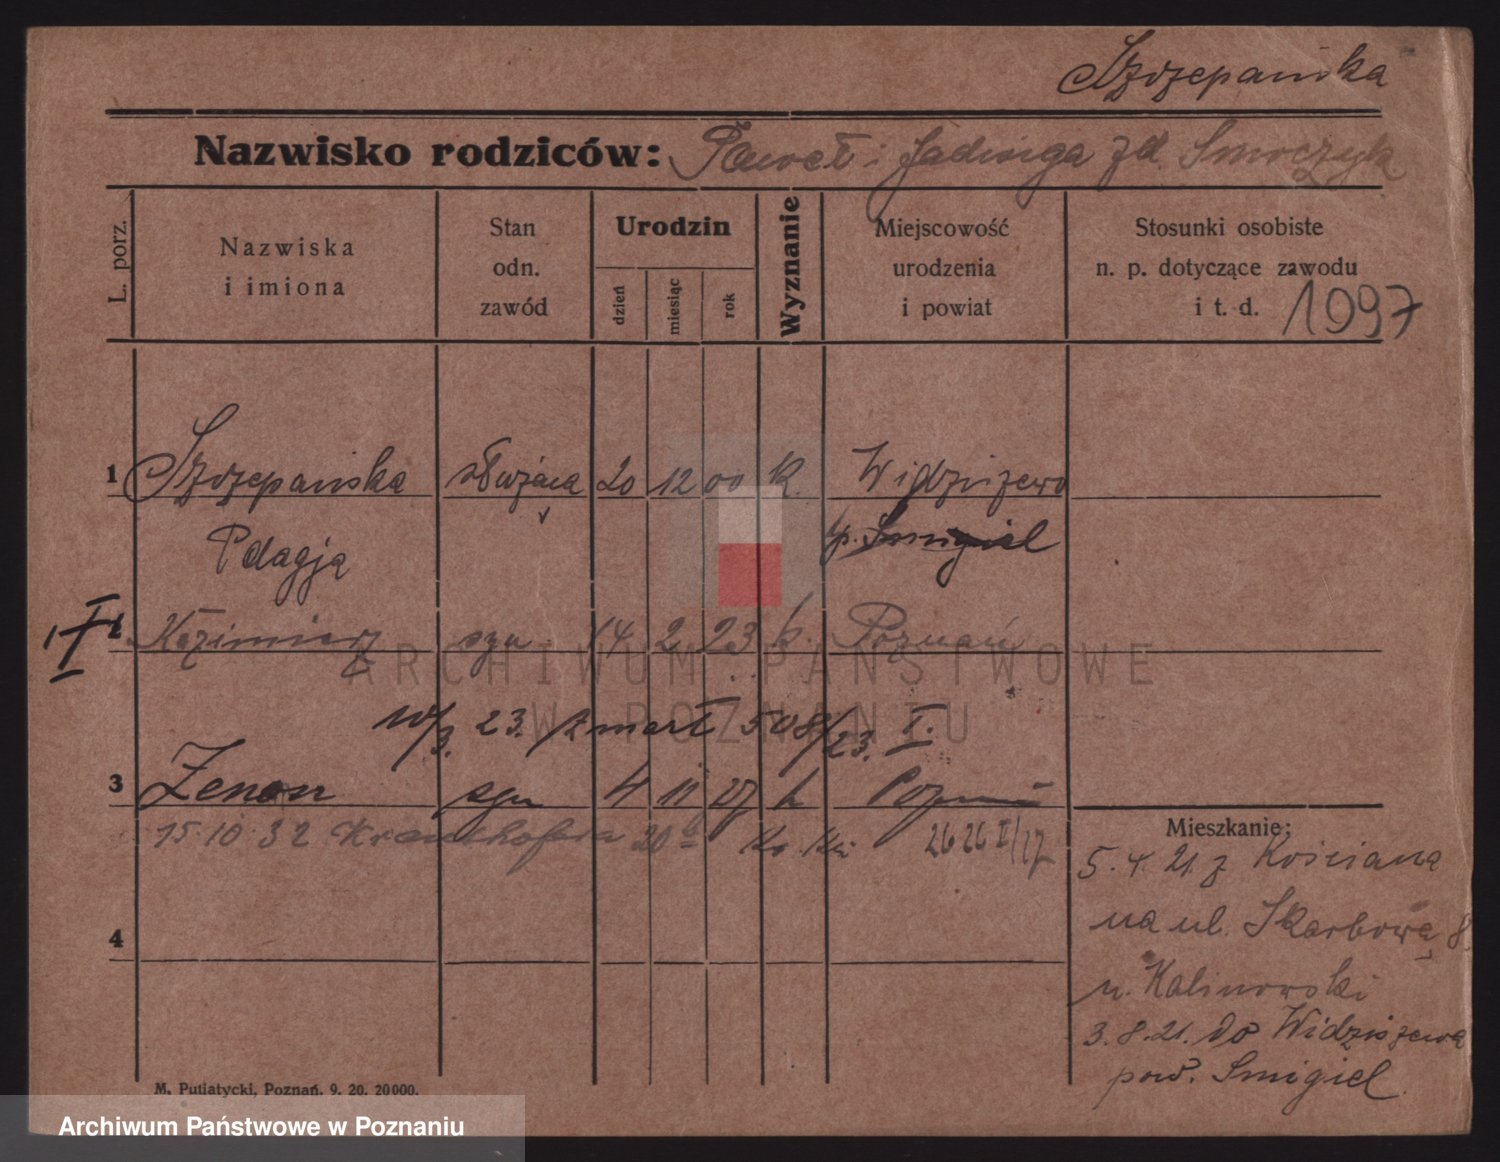 Szczepańska
Nazwisko rodziców: Paweł i Jadwiga zd. Smoczyk
L. porz.
Nazwiska
i imiona
Stan
odn.
zawód
Urodzin
dzień
miesiąc
rok
Wyznanie
Miejscowość
urodzenia
i powiat
Stosunki osobiste
n. p. dotyczące zawodu
i t. d. 1097
1 Szczepańska służąca 20 12 00 k. Widziszewo
Pelagja p. Smigiel
2 Kazimierz syn 14 2 23 k. Poznań
23. zmarł 508/23. I.
3 Zenon syn 4 11 27 k Poznań
15.10.32 20
26 26 I/27
Mieszkanie;
5. 4. 21. z Kościana
na ul. Skarbową 8
u. Kalinowski
3. 8. 21. do Widziszewa
pow. Smigiel.
4
M. Putiatycki, Poznań. 9. 20. 20000.
ARCHIWUM PAŃSTWOWE
W POZNANIU
Archiwum Państwowe w Poznaniu